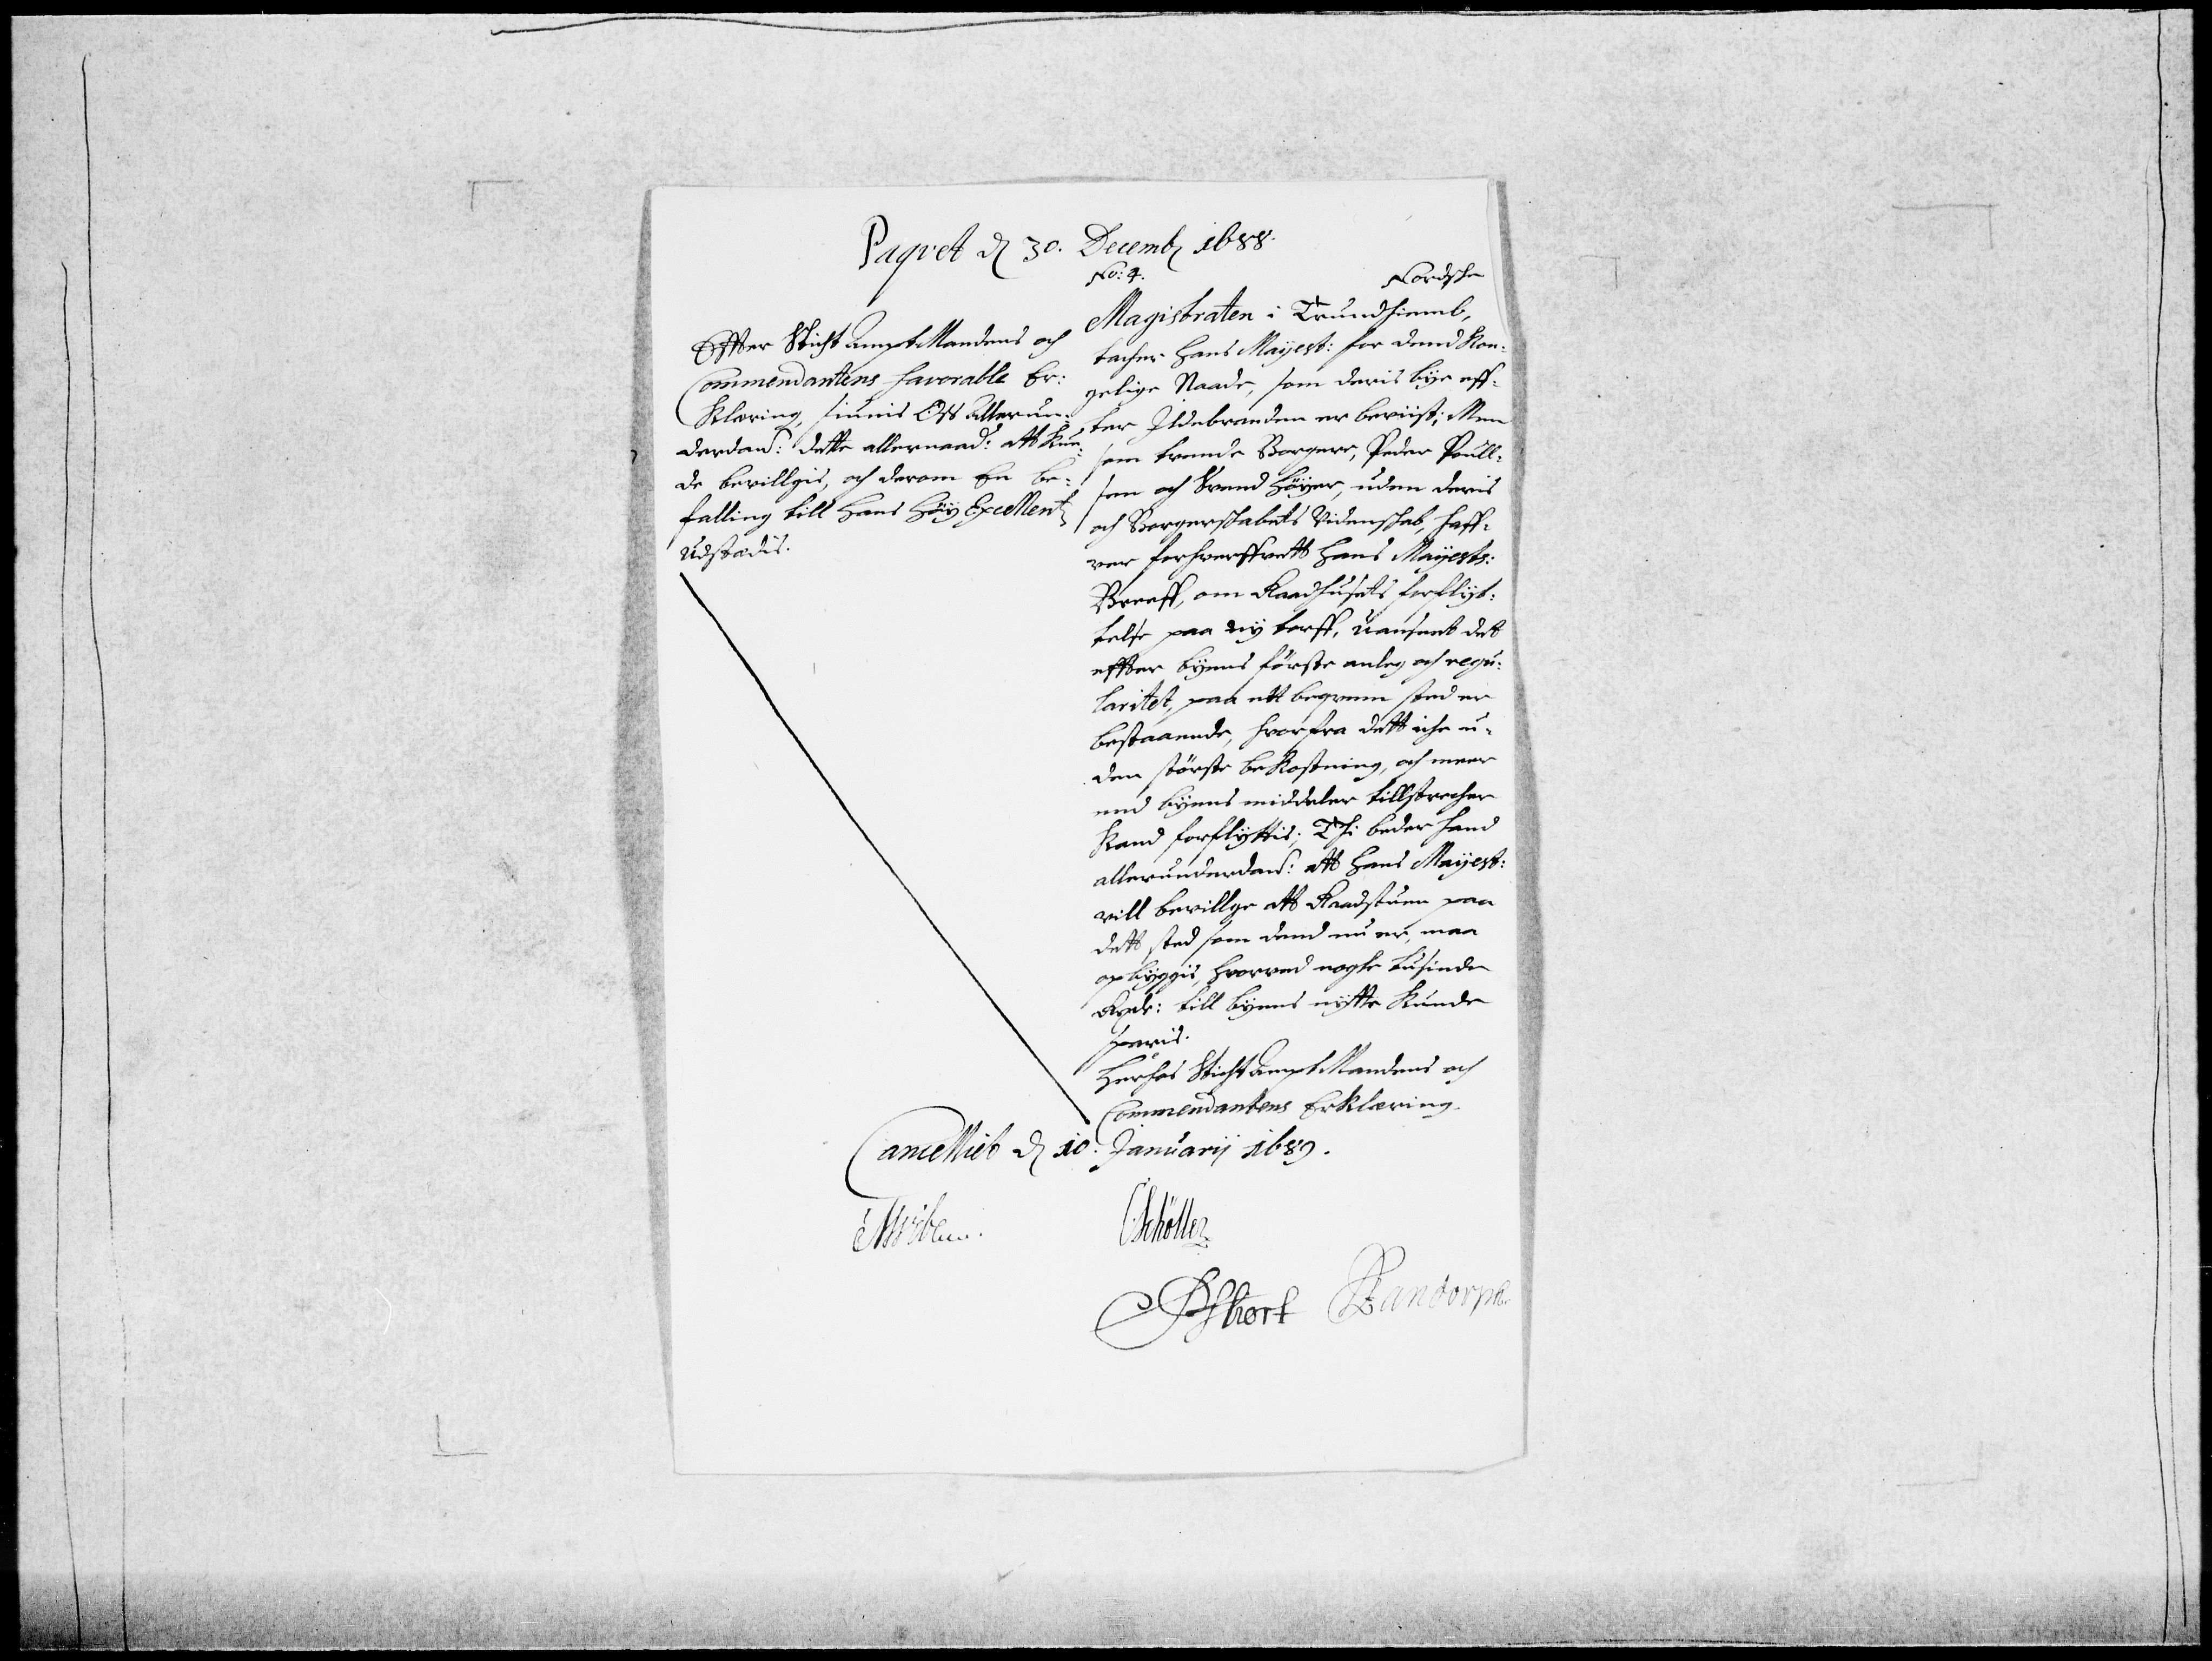 Paqvet d. 30. Decemb. 1688.
No: 4.
Nordsche
Effter Sticht AmptMandens och
Commendantens favorable Er:
klæring, siunis Oss allerun-
derdan: dette allernaad: att kun-
de bevillgis, och derom En be-
falling till Hans Høy Excellentz
udstædis.
Magistraten i Trundhiemb,
tacher Hans Mayest: for dend Kon-
gelige Naade, som deris bye eff-
ter Ildebranden er beviist; Men
som trende Borgere, Peder Poull-
sen och Svend Høyer, uden deris
och Borgerskabets Videnskab, haff-
ver forhverffvett Hans Mayests:
Breeff, om Raadhusets forflyt-
telse paa ny torff, uanseet det
effter byens første anleg och regu-
laritet, paa ett beqvem sted er
bestaaende, hvorfra dett iche u-
den største bekostning, och meer
end byens middeler tillstrecher
kand forflyttis; Thi beder hand
allerunderdan: att Hans Mayest:
vill bevillge att Raadstuen paa
dett sted som dend nu er, maa
opbyggis, hvorved nogle tusinde
Rixdr: till byens nytte kunde
sparis.
Herhos Sticht AmptMandens och
Commendantens Erklæring.
Cancelliet d. 10. Januarij 1689.
Schöller